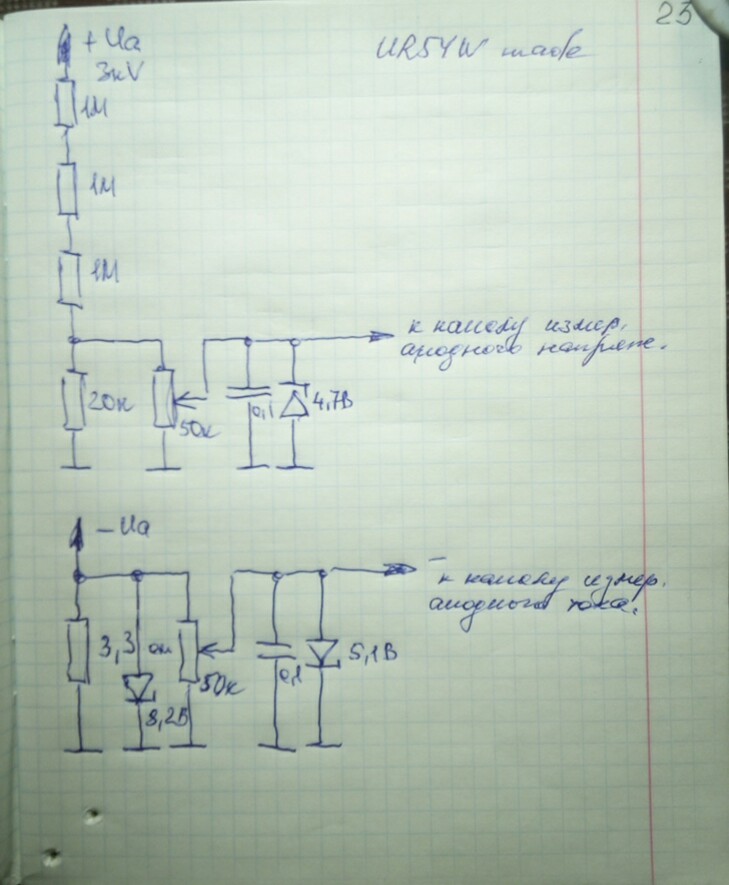 23
+Ua
3кV
UR5YW made
1М
1М
1М
к каналу измер.
анодного напряж.
20к
50к
0,1
4,7В
-Ua
к каналу измер.
анодного тока.
3,3 ом
50к
0,1
5,1В
8,2В